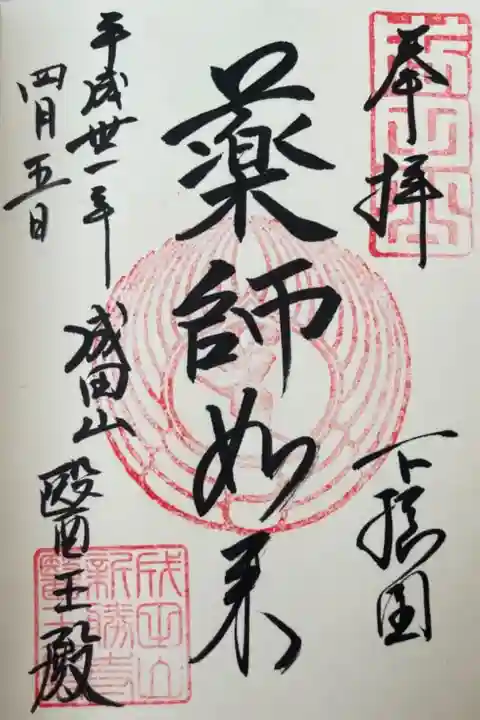 奉拝
下總国
薬師如来
平成卅一年
四月五日
成田山
醫王殿
成田山
新勝寺
醫王殿